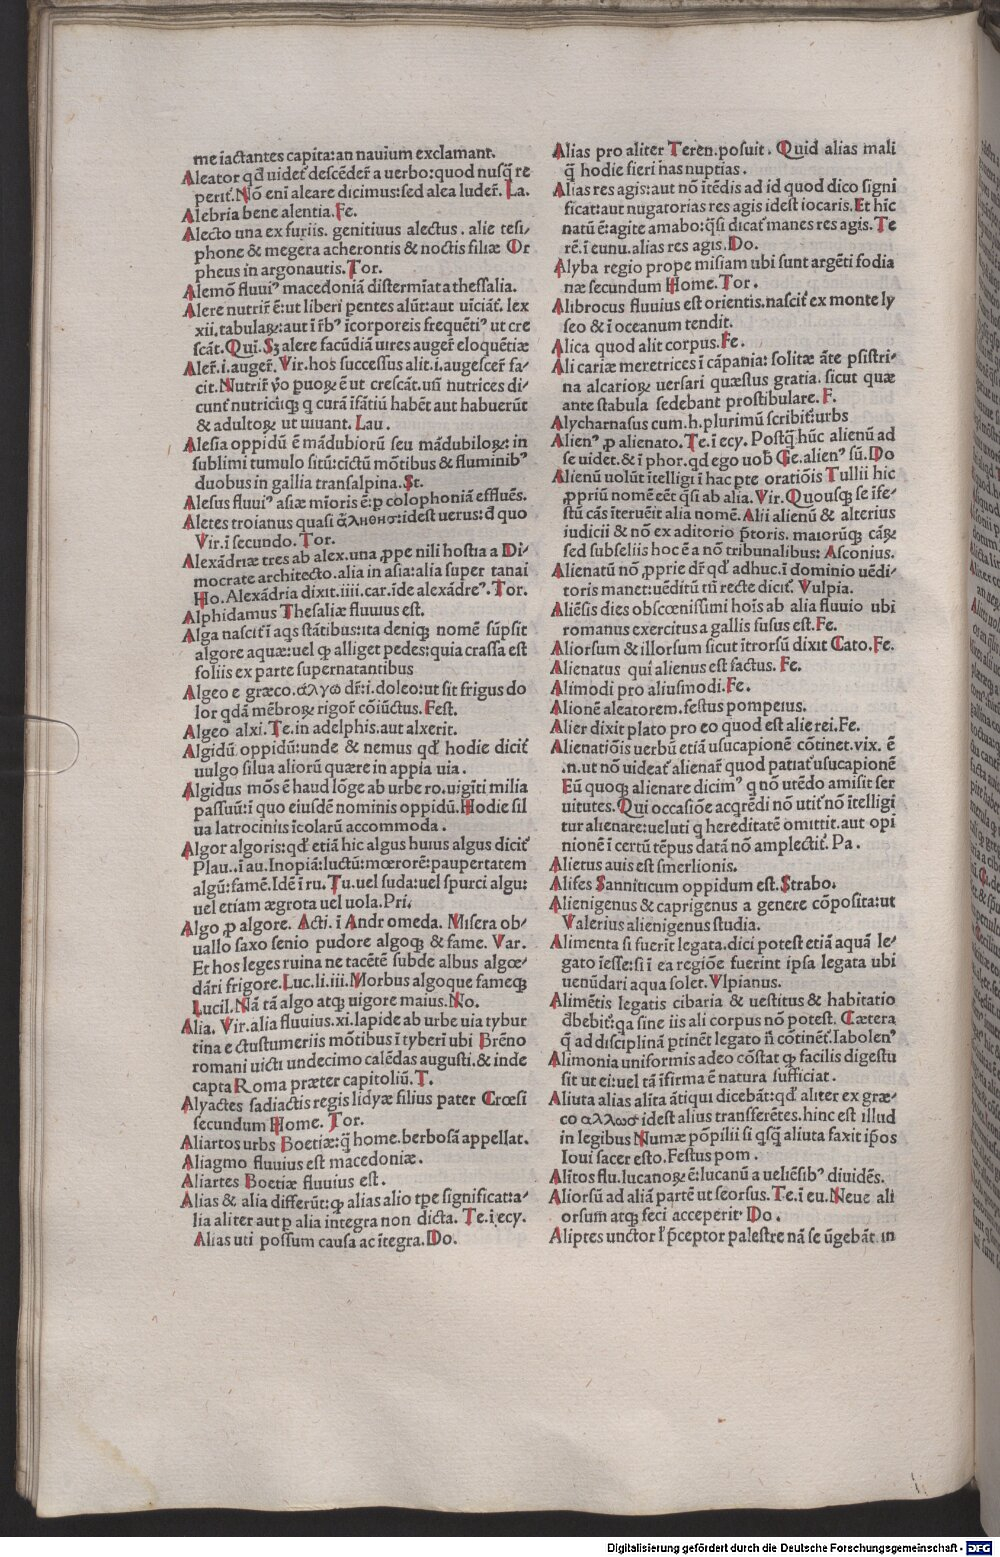 me iactantes capita:an nauium exclamant.
Aleator qđ uideť descēdeř a uerbo:quod nusq̄ re
periť.Nō enī aleare dicimus:sed alea ludeř. La.
Alebria bene alentia.Fe.
Alecto una ex furiis. genitiuus alectus . alie tesi/
phone & megera acherontis & noctis filiæ Or
pheus in argonautis.Tor.
Alemō fluuiꝰ macedoniā distermīat a thessalia.
Alere nutriř ē:ut liberi pentes alūt:aut uiciāt. lex
xii.tabulaꝝ:aut ī r̄bꝰ īcorporeis frequētiꝰ ut cre
scāt.Qui.Sꝫ alere facūdiā uires augeř eloquētiæ
Aleř.i.augeř.Vir.hos successus alit.i.augesceř fa/
cit.Nutriř ṽo puoꝝ ē ut crescāt.usī nutrices di/
cunť nutriciiqꝫ q curā īfātiū habēt aut habuerūt
& adultoꝝ ut uiuant. Lau .
Alesia oppidū ē mādubiorū seu mādubiloꝝ: in
sublimi tumulo sitū:cīctū mōtibus & fluminibꝰ
duobus in gallia transalpina.St.
Alesus fluuiꝰ asiæ mīoris ē:p colophoniā effluēs.
Aletes troianus quasi ἄληθησ:idest uerus:đ quo
Vir.ī secundo. Tor.
Alexādriæ tres ab alex.una ꝓpe nili hostia a Di/
mocrate architecto.alia in asia:alia super tanai
Ho.Alexādria dixit.iiii.car.īde alexādreꝰ.Tor.
Alphidamus Thesaliæ fluuius est.
Alga nasciť ī aqs stātibus:ita deniqꝫ nomē sūpsit
algore aquæ:uel ꝙ alliget pedes:quia crassa est
foliis ex parte supernatantibus
Algeo e græco.ἀλγω dř:i.doleo:ut sit frigus do
lor qdā mēbroꝝ rigoř cōiūctus. Fest.
Algeo alxi. Te.in adelphis.aut alxerit.
Algidū oppidū:unde & nemus qđ hodie diciť
uulgo silua aliorū quære in appia uia .
Algidus mōs ē haud lōge ab urbe ro.uigīti milia
passuū:ī quo eiusdē nominis oppidū.Hodie sil
ua latrociniis īcolarū accommoda .
Algor algoris:qđ etiā hic algus huius algus diciť
Plau..ī au.Inopiā:luctū:mœrorē:paupertatem
algū:famē.Idē ī ru.Tu.uel suda:uel spurci algu:
uel etiam ægrota uel uola.Pri.
Algo ꝓ algore. Acti. ī Andr omeda. Misera ob/
uallo saxo senio pudore algoqꝫ & fame. Var.
Et hos leges ruina ne tacētē subde albus algœ/
dāri frigore.Luc.li.iii.Morbus algoque fameqꝫ
Lucil.Nā tā algo atqꝫ uigore maius.No.
Alia. Vir.alia fluuius.xi.lapide ab urbe uia tybur
tina e ctustumeriis mōtibus ī tyberī ubi Brēno
romani uicti undecimo calēdas augusti.& inde
capta Roma præter capitoliū. T.
Alyactes sadiactis regis lidyæ filius pater Crœsi
secundum Home. Tor.
Aliartos urbs Boetiæ:q̄ home.herbosā appellat.
Aliagmo fluuius est macedoniæ .
Aliartes Boetiæ fluuius est .
Alias & alia differūt:ꝙ alias alio tp̄e significat:a/
lia aliter aut p alia integra non dicta. Te.ī ecy.
Alias uti possum causa ac ītegra.Do.
Alias pro aliter Teren.posuit . Quid alias mali
q̄ hodie fieri has nuptias .
Alias res agis:aut nō ītēdis ad id quod dico signi
ficat:aut nugatorias res agis idest iocaris.Et hic
natū ē:agite amabo:q̄si dicať manes res agis. Te
rē.ī eunu.alias res agis.Do.
Alyba regio prope misiam ubi sunt argēti fodia
næ secundum Home. Tor .
Alibrocus fluuius est orientis.nasciť ex monte ly
seo & ī oceanum tendit.
Alica quod alit corpus.Fe.
Ali cariæ meretrices ī cāpania: solitæ āte pistri/
na alcarioꝝ uersari quæstus gratia. sicut quæ
ante stabula sedebant prostibulare. F.
Alycharnasus cum.h.plurimū scribiť:urbs
Alienꝰ ꝓ alienato. Te.ī ecy. Postq̄ hūc alienū ad
se uidet.& ī phor.qđ ego uob̄ Ge.alienꝰ sū.Do
Alienū uolūt ītelligi ī hac pte oratiōis Tullii hic
ꝓpriū nomē eēt q̄si ab alia. Vir.Quousqꝫ se īfe/
stū cās īterueīt alia nomē. Alii alienū & alterius
iudicii & nō ex aditorio p̄toris. maiorūqꝫ cāꝝ
sed subseliis hoc ē a nō tribunalibus: Asconius.
Alienatū nō ꝓprie dř qđ adhuc.ī dominio uēdi/
toris manet:uēditū tñ recte diciť. Vulpia.
Aliēsis dies obscœnissimi hoīs ab alia fluuio ubi
romanus exercitus a gallis fusus est.Fe.
Aliorsum & illorsum sicut ītrorsū dixit Cato.Fe.
Alienatus qui alienus est factus. Fe.
Alimodi pro aliusmodi.Fe.
Alionē aleatorem.festus pompeius.
Alier dixit plato pro eo quod est alie rei.Fe.
Alienatiōis uerbū etiā usucapionē cōtinet.uix. ē
.n.ut nō uideať alienař quod patiať usucapionē
Eū quoqꝫ alienare dicimꝰ q nō utēdo amisit ser
uitutes.Qui occasiōe acqrēdi nō utiť nō ītelligi
tur alienare:ueluti q hereditatē omittit.aut opi
nionē ī certū tēpus datā nō amplectiť. Pa .
Alierus auis est smerlionis.
Alifes Sanniticum oppidum est.Strabo.
Alienigenus & caprigenus a genere cōposita:ut
Valerius alienigenus studia.
Alimenta si fuerit legata.dici potest etiā aquā le/
gato īesse:si ī ea regiōe fuerint ipsa legata ubi
uenūdari aqua solet. Vlpianus.
Alimētis legatis cibaria & uestitus & habitatio
đbebiť:qa sine iis ali corpus nō potest. Cætera
q̄ ad disciplinā ptinēt legato ñ cōtinēť.Iabolenꝰ
Alimonia uniformis adeo cōstat ꝙ facilis digestu
sit ut ei:uel tā īfirma ē natura sufficiat .
Aliuta alias alita ātiqui dicebāt:qđ aliter ex græ/
co αλλωσ idest alius transferētes.hinc est illud
in legibus Numæ pōpilii si qsq̄ aliuta faxit ip̄os
Ioui sacer esto.Festus pom .
Alītos flu.lucanoꝝ ē:lucanū a ueliēsibꝰ diuidēs.
Aliorsū ad aliā partē ut seorsus. Te.ī eu.Neue ali
orsum atqꝫ feci acceperit· Do .
Aliptes unctor ł p̄ceptor palestre nā se ūgebāt in
Digitalisierung gefördert durch die Deutsche Forschungsgemeinschaft - DFG